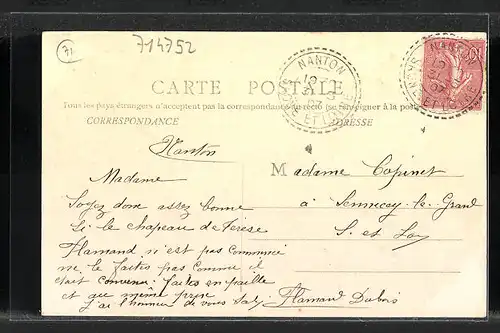 71
714752
NANTON
SAONE ET LOIRE
NANTON
CARTE POSTALE
Tous les pays étrangers n'acceptent pas la correspondance au recto (se renseigner à la poste)
CORRESPONDANCE
ADRESSE
Nanton
Madame
Soyez donc assez bonne
Si le chapeau de Terese
Flamand n'est pas commencé
ne le faites pas comme il
était convenu. faites en paille
et au même prix
j'ai l'honneur de vous Sal.
Flamand Dubois
Madame Copinet
à Sennecey-le-Grand
S. et Loire